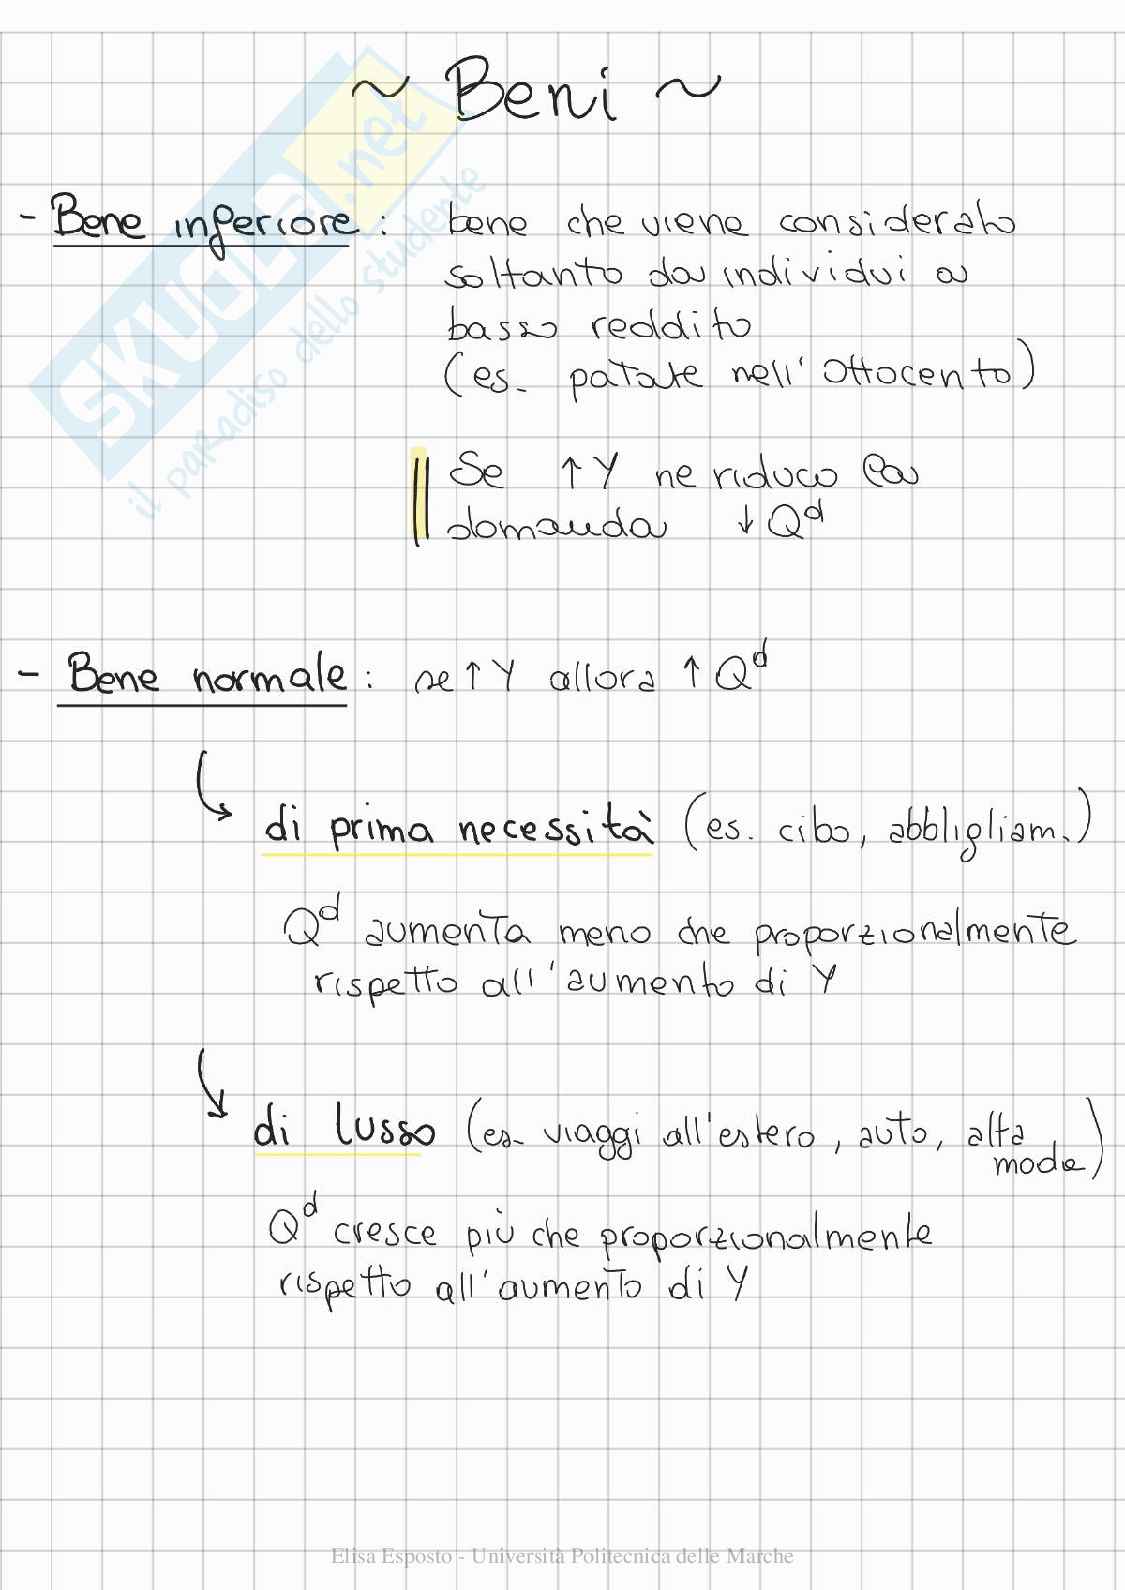 ~ Beni ~
- Bene inferiore: bene che viene considerato
soltanto da individui a
basso reddito
(es. patate nell'Ottocento)
Se ↑Y ne riduco la
domanda ↓Qᵈ
- Bene normale: se↑Y allora ↑Qᵈ
di prima necessità (es. cibo, abbligliam.)
Qᵈ aumenta meno che proporzionalmente
rispetto all'aumento di Y
di lusso (es. viaggi all'estero, auto, alta
moda)
Qᵈ cresce più che proporzionalmente
rispetto all'aumento di Y
SKUOLA.net
il paradiso dello studente
Elisa Esposto - Università Politecnica delle Marche